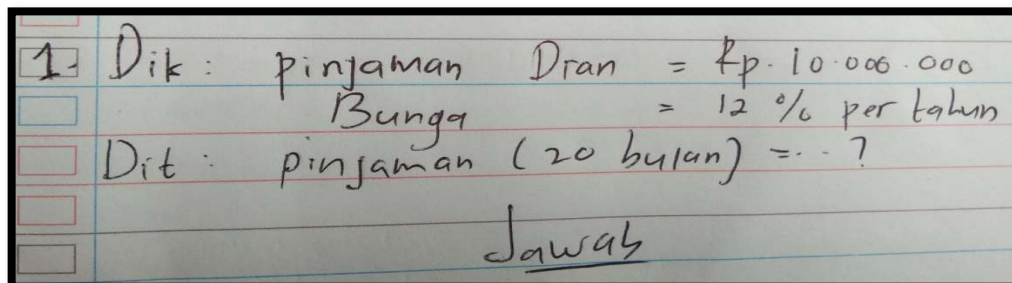 1. Dik : pinjaman Dian = Rp. 10.000.000
Bunga = 12 % per tahun
Dit : pinjaman (20 bulan) = .. ?
Jawab